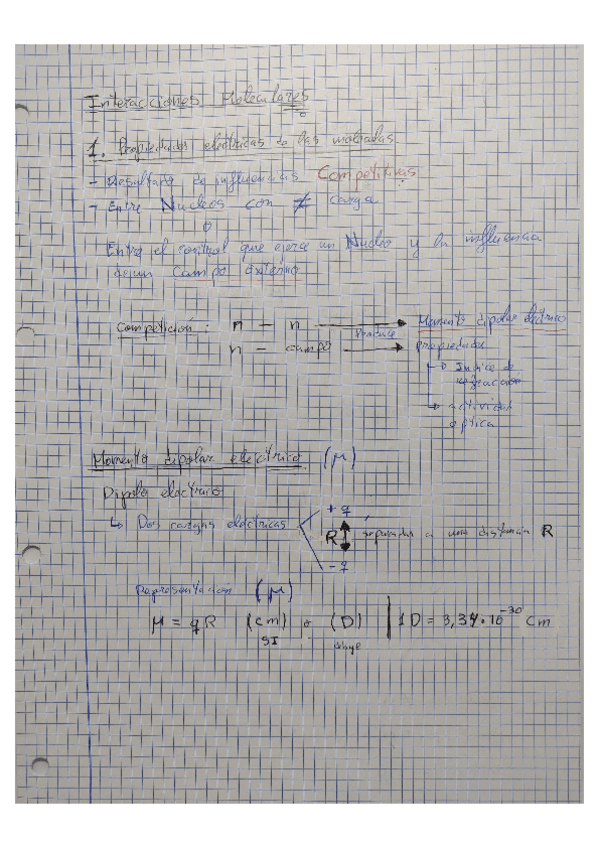 Interacciones Moleculares
1. Propiedades eléctricas de las moléculas.
- Resultado de influencias Competitivas
- Entre Nucleos con ≠ carga
o
Entre el control que ejerce un Nucleo y la influencia
de un campo externo
Competición: n - n → Produce Momento dipolar eléctrico
n - campo → propiedades
↳ Indice de
refracción
↳ actividad
optica
Momento dipolar electrico (μ)
Dipolo electrico
↳ Dos cargas eléctricas +q -q R separadas a una distancia R
Representación (μ)
μ = qR (Cm) o (D) | 1D = 3,34·10⁻³⁰ Cm
SI